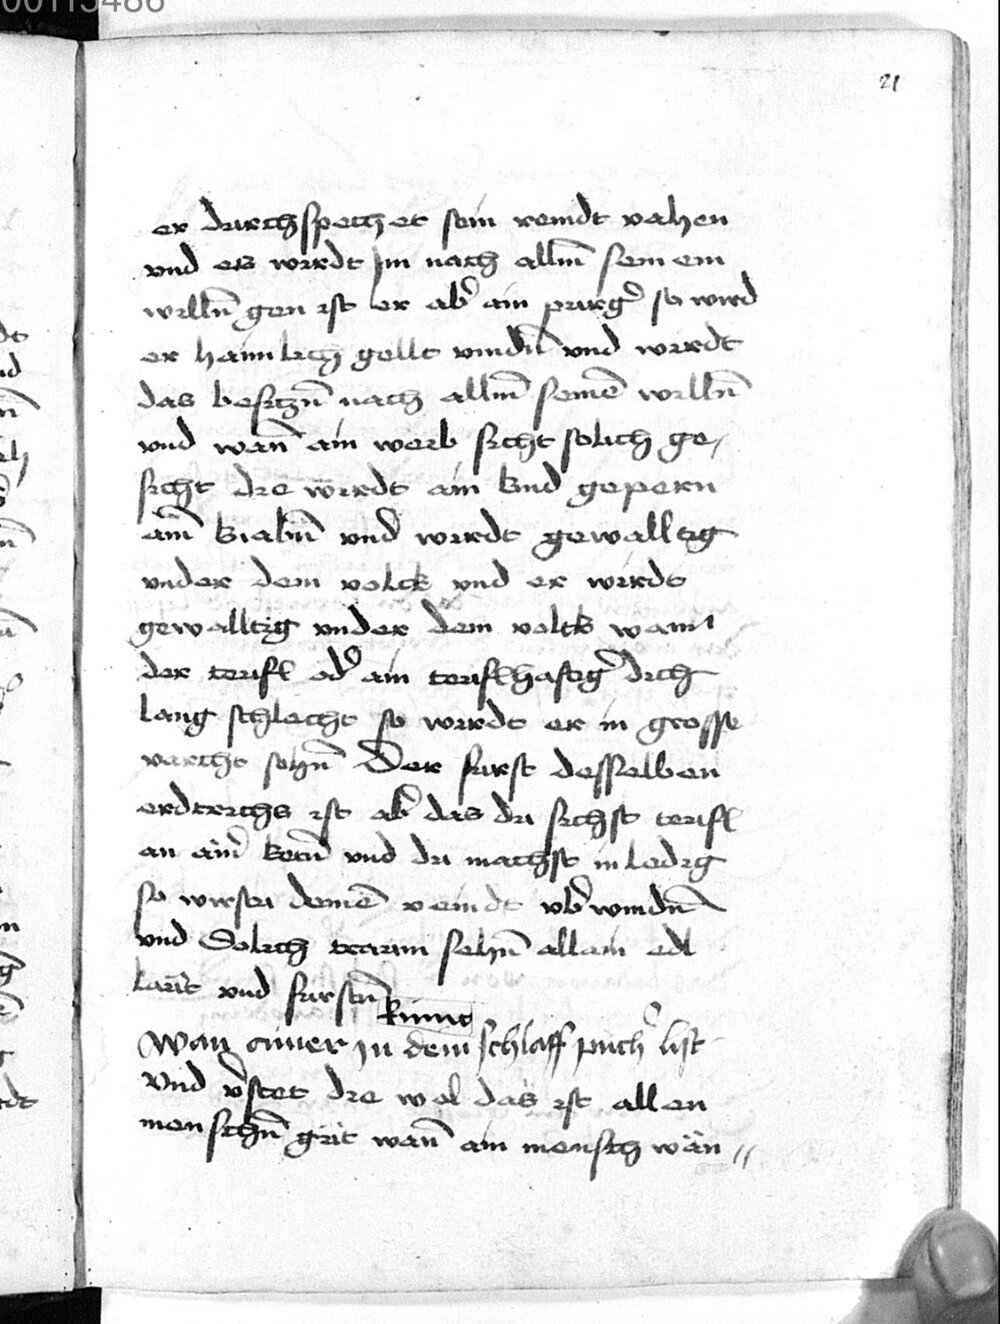 00115486
21
er durchspechet sein veindt vahen
vnd es wirdt Im nach allm̄ sein em
willn̄ gen ist er ab̓ ain purg̓ so wird
er haimlich gellt vindn̄ vnd wirdt
das besitzn̄ nach allm̄ seinē willn̄
vnd wan̄ ain weib sicht solich ge,
sicht die wirdt ain kind gepern
ain̄ knabn̄ vnd wirdt gewalltig
vnder dem volck vnd er wirdt
gewalltig vnder dem volck wann
der teufl od̓ ain teuflhaftig̓ dich
lang schlecht so wirdt er in grosse
varcht Der furst desselben
erdtrichs ist ab̓ das du sichst teufl
an ain̄ vnd du machst in ledig
so wirstu deinē veindt vb̓windn̄
vnd Solich traum sehn̄ allain edl
lawt vnd furstn̄
kunig
Wan ainer In dem schlaff puch̓ list
Vnd v̓stet die wol das ist allen
menschn̄ guet wan̄ ain mensch wän //